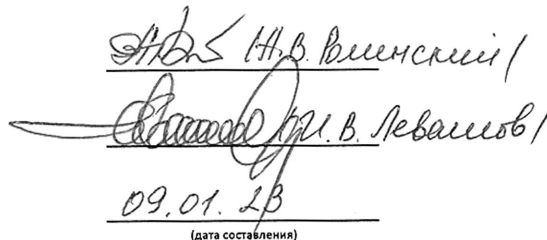 /Ж.В. Роминский/
/И.В. Левашов/
09.01.23
(дата составления)